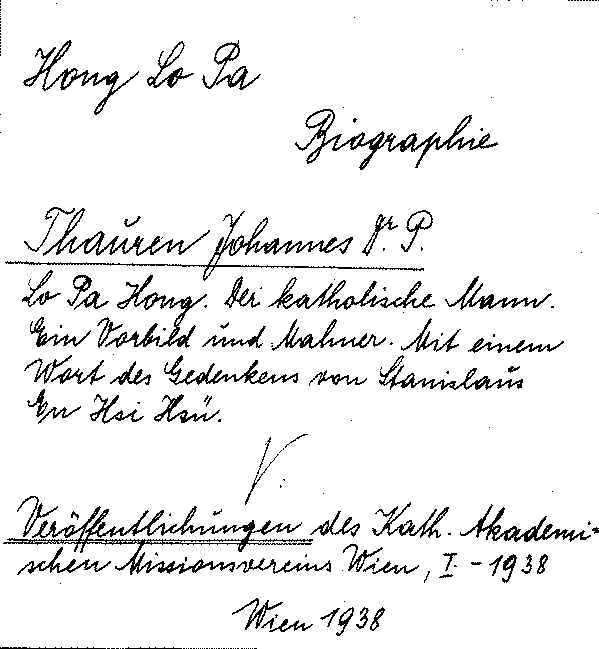 Hong Lo Pa
Biographie
Thauren Johannes Dr. P.
Lo Pa Hong. Der katholische Mann.
Ein Vorbild und Mahner. Mit einem
Wort des Gedenkens von Stanislaus
En Hsi Hsü.
V.
Veröffentlichungen des Kath. Akademi=
schen Missionsvereins Wien, I. - 1938
Wien 1938